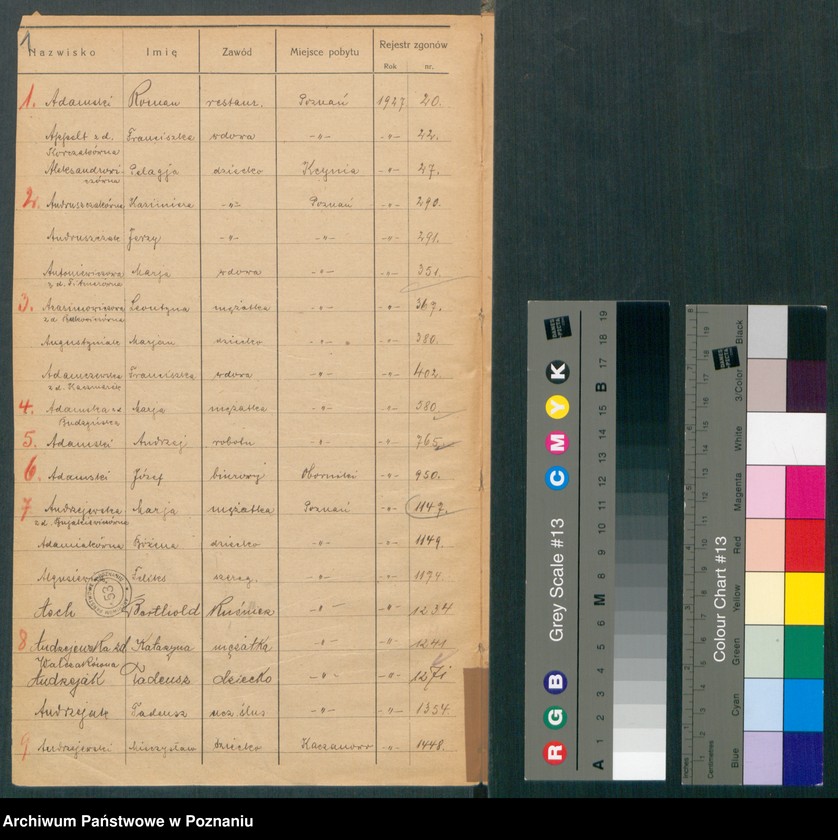 1
Nazwisko Imię Zawód Miejsce pobytu Rejestr zgonów
Rok nr.
1. Adamski Roman restaur. Poznań 1927 20.
Appelt z d. Franciszka wdowa -"- -"- 22.
Aleksandrowi- Pelagja dziecko Kcynia -"- 27.
czówna
2. Andruszczakówna Kazimiera -"- Poznań -"- 290.
Andruszczak Jerzy -"- -"- -"- 291.
Antoniewiczowa Marja wdowa -"- -"- 351.
3. Leontyna mężatka -"- -"- 367.
Augustyniak Marjan dziecko -"- -"- 380.
Adamczewska Franciszka wdowa -"- -"- 402.
z d. Kaczmarek
4. Adamska z d. Marja mężatka -"- -"- 580
Budzyńska
5. Adamski Andrzej robotn. -"- -"- 765
6. Adamski Józef biurowy Oborniki -"- 950.
7 Andrzejewska Marja mężatka Poznań -"- 1147.
Adamiakówna Bożena dziecko -"- -"- 1149.
Feliks szereg. -"- -"- 1174
53
Asch Berthold kuśnierz -"- -"- 1234
8 Andrzejewska zd Katarzyna mężatka -"- -"- 1241
Walczakówna
Andrzejak Tadeusz dziecko -"- -"- 1271
Andrzejak Tadeusz ucz. ślus -"- -"- 1354.
9 Andrzejewski Mieczysław dziecko Kaczanowo -"- 1448.
Grey Scale #13
R G B C M Y K
A 1 2 3 4 5 6 M 8 9 10 11 12 13 14 15 B 17 18 19
DANES PICTA
Colour Chart #13
Blue Cyan Green Yellow Red Magenta White 3/Color Black
Inches
Centimetres
Archiwum Państwowe w Poznaniu